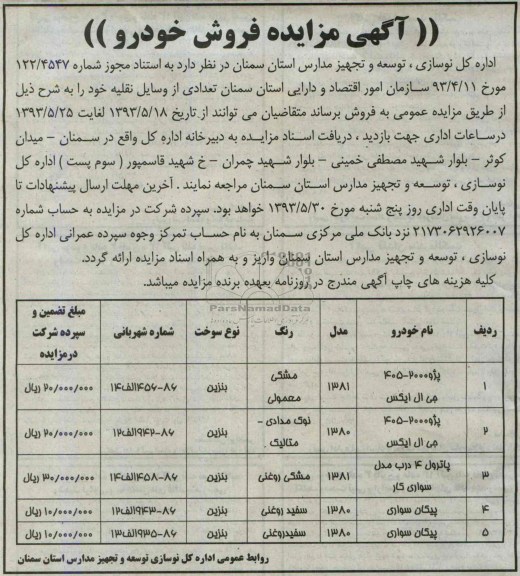 (( آگهی مزایده فروش خودرو ))
اداره کل نوسازی ، توسعه و تجهیز مدارس استان سمنان در نظر دارد به استناد مجوز شماره ۱۲۲/۴۵۴۷
مورخ ۹۳/۴/۱۱ سازمان امور اقتصاد و دارایی استان سمنان تعدادی از وسایل نقلیه خود را به شرح ذیل
از طریق مزایده عمومی به فروش برساند متقاضیان می توانند از تاریخ ۱۳۹۳/۵/۱۸ لغایت ۱۳۹۳/۵/۲۵
درساعات اداری جهت بازدید ، دریافت اسناد مزایده به دبیرخانه اداره کل واقع در سمنان – میدان
کوثر – بلوار شهید مصطفی خمینی – بلوار شهید چمران – خ شهید قاسمپور ( سوم پست ) اداره کل
نوسازی ، توسعه و تجهیز مدارس استان سمنان مراجعه نمایند . آخرین مهلت ارسال پیشنهادات تا
پایان وقت اداری روز پنج شنبه مورخ ۱۳۹۳/۵/۳۰ خواهد بود. سپرده شرکت در مزایده به حساب شماره
۲۱۷۳۰۶۲۹۲۶۰۰۷ نزد بانک ملی مرکزی سمنان به نام حساب تمرکز وجوه سپرده عمرانی اداره کل
نوسازی ، توسعه و تجهیز مدارس استان سمنان واریز و به همراه اسناد مزایده ارائه گردد.
کلیه هزینه های چاپ آگهی مندرج در روزنامه بعهده برنده مزایده میباشد.
ParsNamadData
ردیف نام خودرو مدل رنگ نوع سوخت شماره شهربانی مبلغ تضمین و سپرده شرکت درمزایده
۱ پژو۲۰۰۰-۴۰۵ جی ال ایکس ۱۳۸۱ مشکی معمولی بنزین ۸۶-۴۵۶الف۱۴ ۲۰/۰۰۰/۰۰۰ ریال
۲ پژو۲۰۰۰-۴۰۵ جی ال ایکس ۱۳۸۰ نوک مدادی – متالیک بنزین ۸۶-۹۴۲الف۱۲ ۲۰/۰۰۰/۰۰۰ ریال
۳ پاترول ۴ درب مدل سواری کار ۱۳۸۱ مشکی روغنی بنزین ۸۶-۴۵۸الف۱۴ ۳۰/۰۰۰/۰۰۰ ریال
۴ پیکان سواری ۱۳۸۰ سفید روغنی بنزین ۸۶-۹۴۳الف۱۲ ۱۰/۰۰۰/۰۰۰ ریال
۵ پیکان سواری ۱۳۸۰ سفیدروغنی بنزین ۸۶-۹۳۵الف۱۳ ۱۰/۰۰۰/۰۰۰ ریال
روابط عمومی اداره کل نوسازی توسعه و تجهیز مدارس استان سمنان